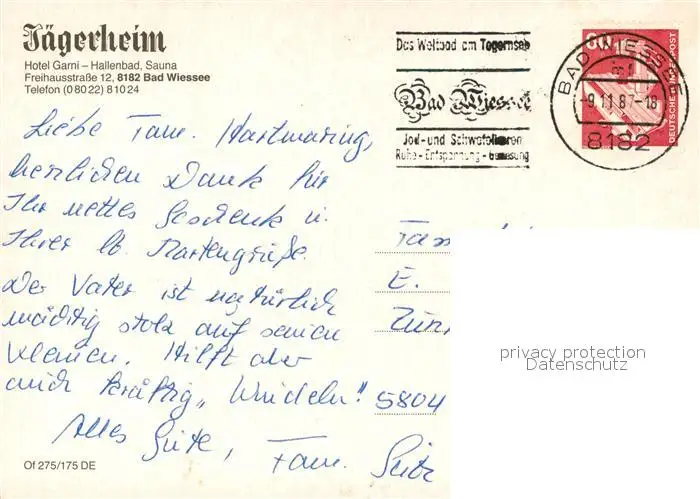 Jägerheim
Hotel Garni – Hallenbad, Sauna
Freihausstraße 12, 8182 Bad Wiessee
Telefon (0 80 22) 8 10 24
Das Weltbad am Tegernsee
Bad Wiessee
Jod- und Schwefelquellen
Ruhe - Entspannung - Genesung
BAD WIESSEE
-9.11.87-18
8182
80
DEUTSCHE BUNDESPOST
Liebe Fam. Hartmaring,
herzlichen Dank für
Ihr nettes Geschenk u.
Ihrer lb. Kartengrüße.
Der Vater ist natürlich
mächtig stolz auf seinen
Kleinen. Hilft aber
auch kräftig „Windeln"
Alles Gute, Fam. Seitz
Fam
E.
5804
privacy protection
Datenschutz
Of 275/175 DE